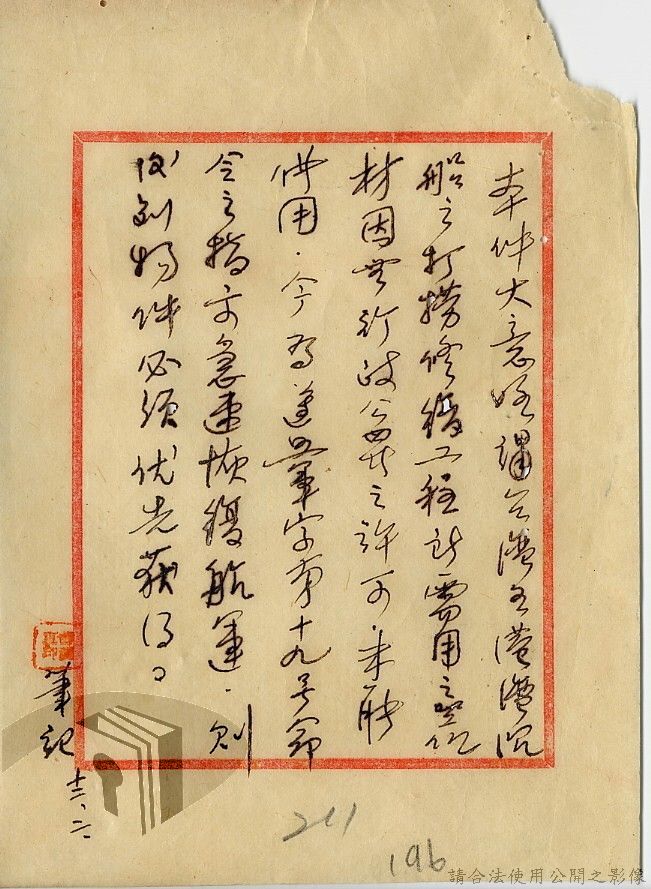 本件大意略謂台灣各港灣沉
船之打撈修復工程所需用之器
材因無行政公署之許可.未能
使用.今為遵軍字第十九号命
令之指示急速恢復航運.則
後列物件必須优先获得。
筆記 十二、二
211
196
請合法使用公開之影像